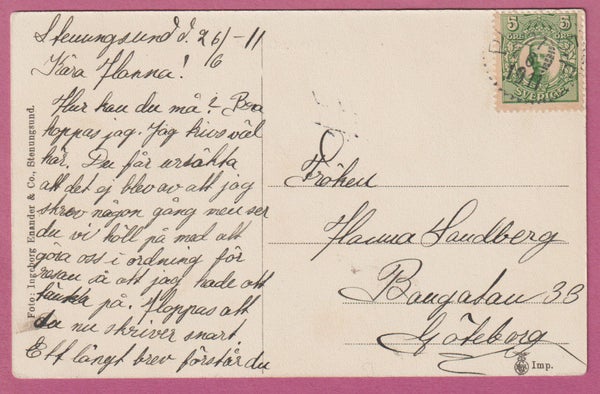 Stenungsund d. 26/6 -11
Kära Hanna!
Hur kan du må? Bra
hoppas jag. Jag trivs väl
här. Du får ursäkta
att det ej blev av att jag
skrev någon gång men ser
du vi höll på med att
göra oss i ordning för
resan så att jag hade att
tänka på. Hoppas att
du nu skriver snart.
Ett långt brev förstår du
Foto: Ingeborg Enander & Co., Stenungsund.
5 5
ÖRE ÖRE
SVERIGE
Fröken
Hanna Sandberg
Bangatan 33
Göteborg
Imp.